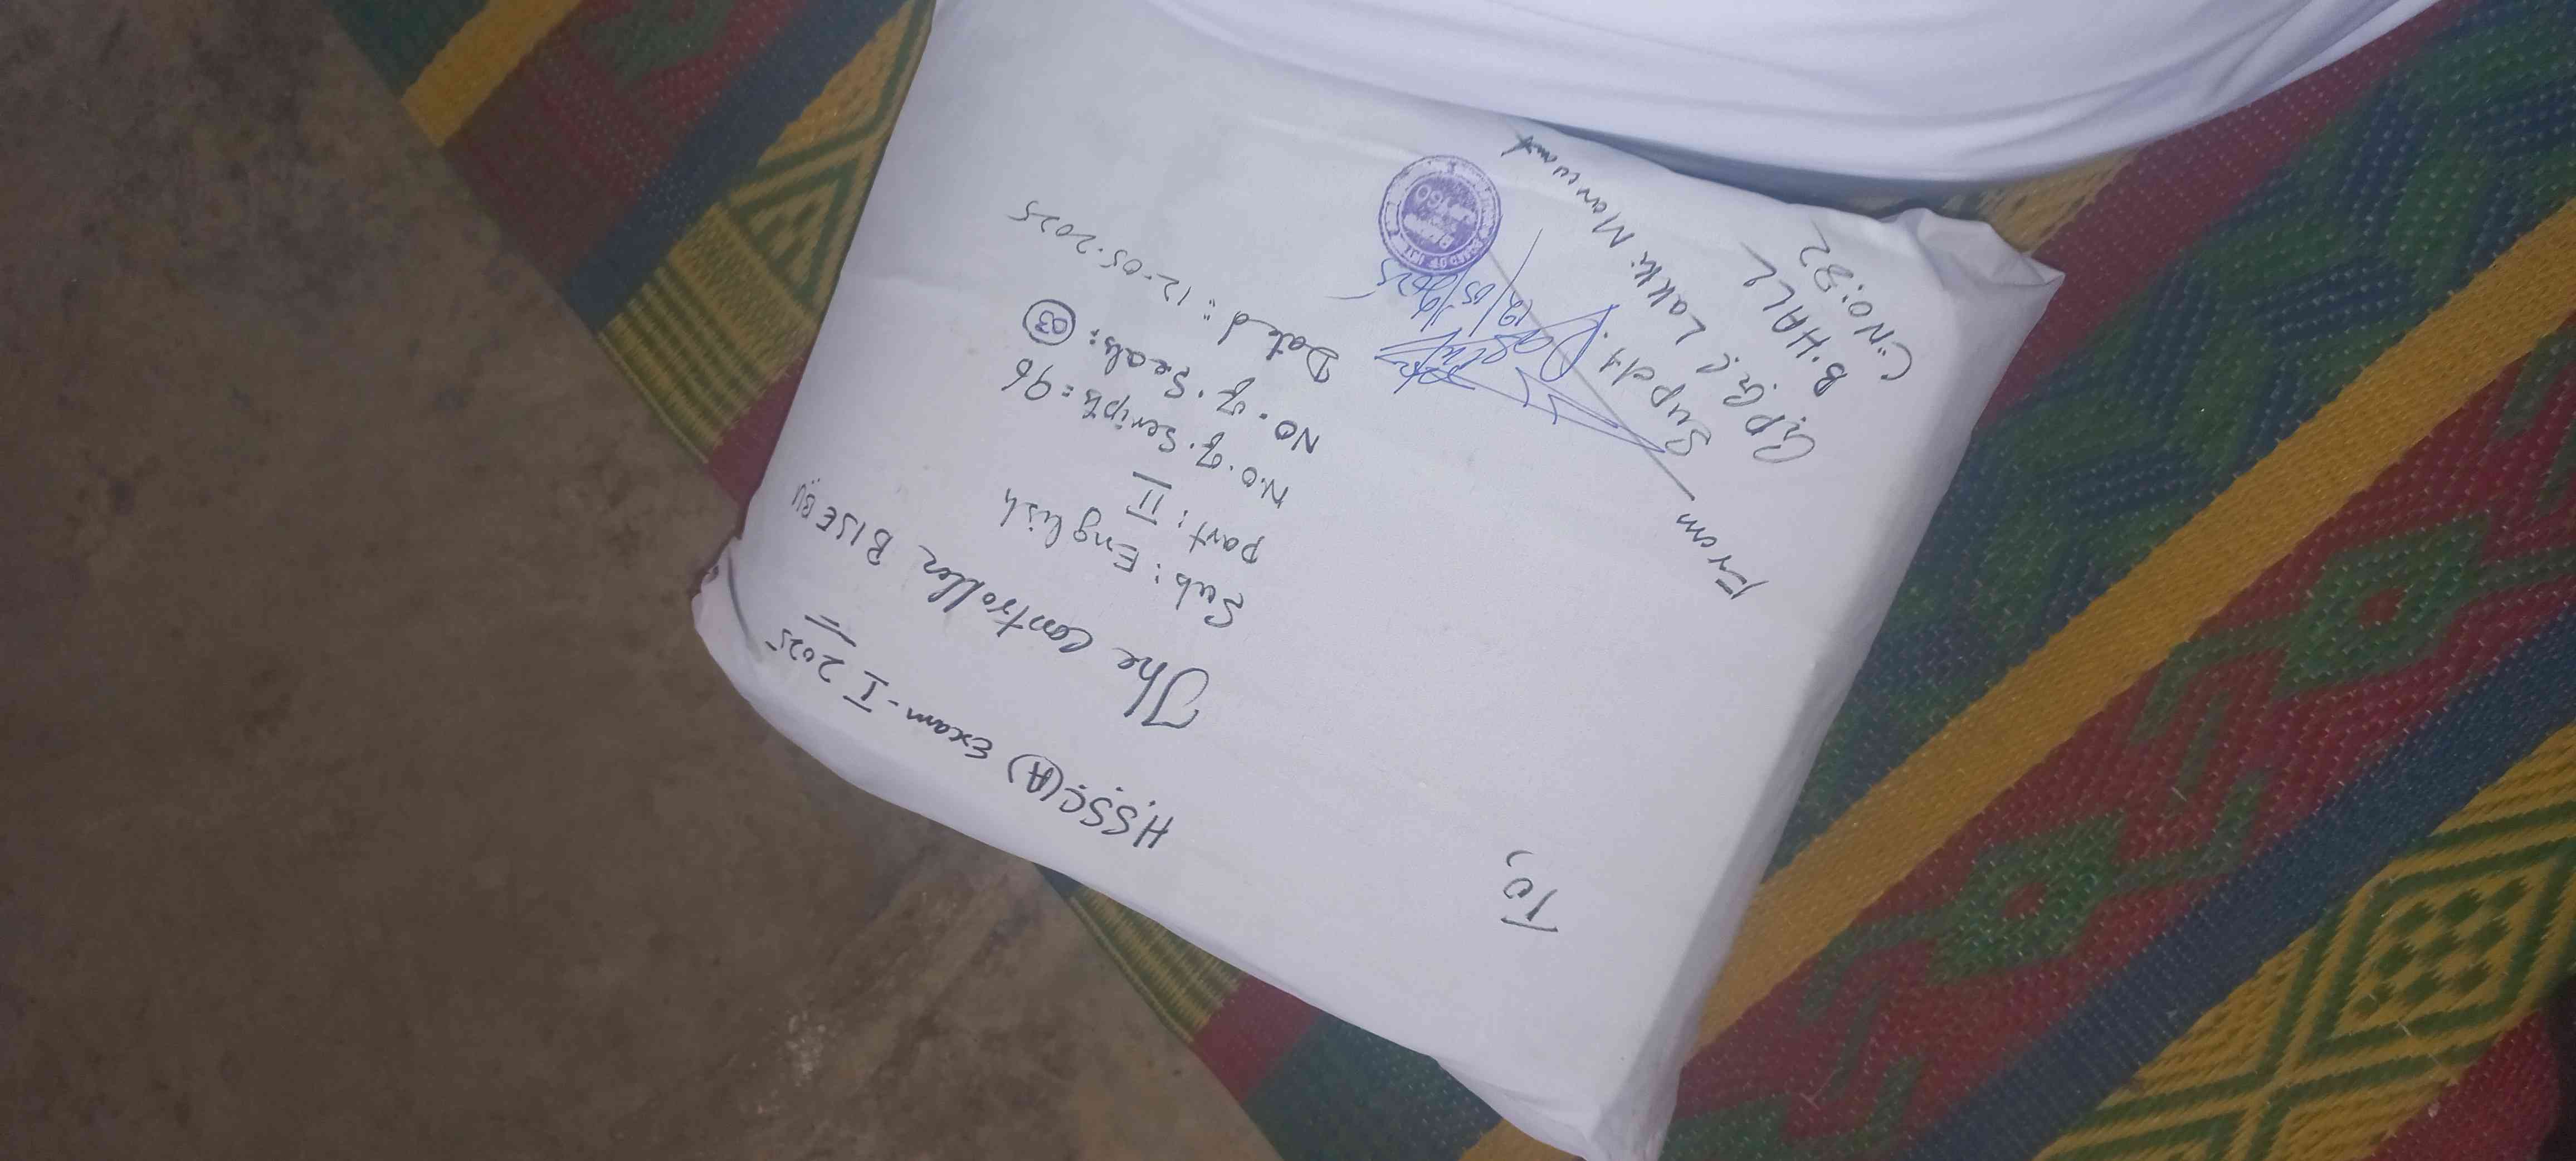 H.S.S.C(A) Exam-I 2025
To,
The Controller BISE BU
Sub: English
Part: II
No. of. Scripts = 96
No. of. Seals: 03
Dated: 12-05-2025
From
Supdtt.
G.P.G.C Lakki Marwat
B.HALL
C.NO:82
12/05/2025